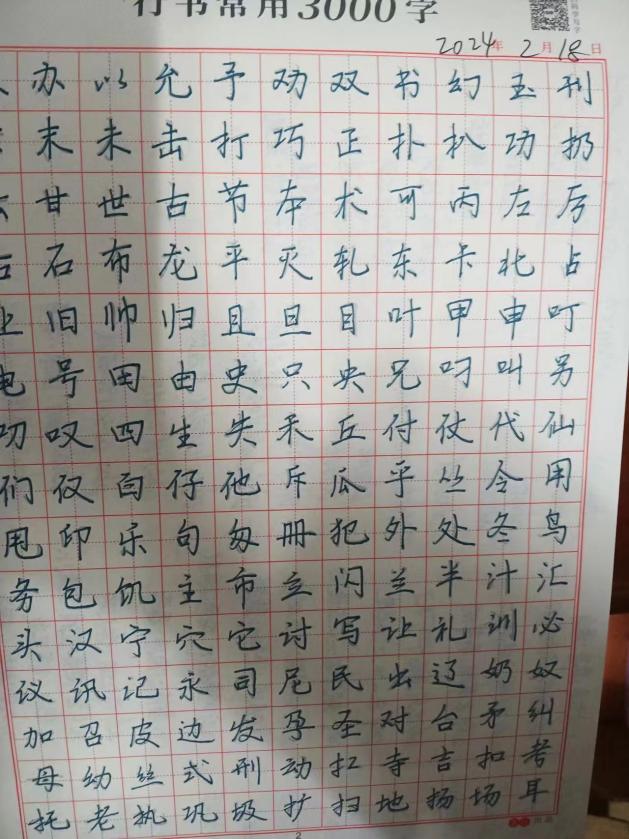 行书常用3000字
2024年2月18日
办以允予劝双书幻玉刊
末未击打巧正扑扒功扔
甘世古节本术可丙左厉
石石布龙平灭轧东卡北占
业旧帅归且旦目叶甲申叮
电号田由史只央兄叼叫另
叨叹四生失禾丘付仗代仙
们仪白仔他斥瓜乎丛令用
甩印乐句匆册犯外处冬鸟
务包饥主市立闪兰半汁汇
头汉宁穴它讨写让礼训必
议讯记永司尼民出辽奶奴
加召皮边发孕圣对台矛纠
母幼丝式刑动扛寺吉扣考
托老执巩圾扩扫地扬场耳
2